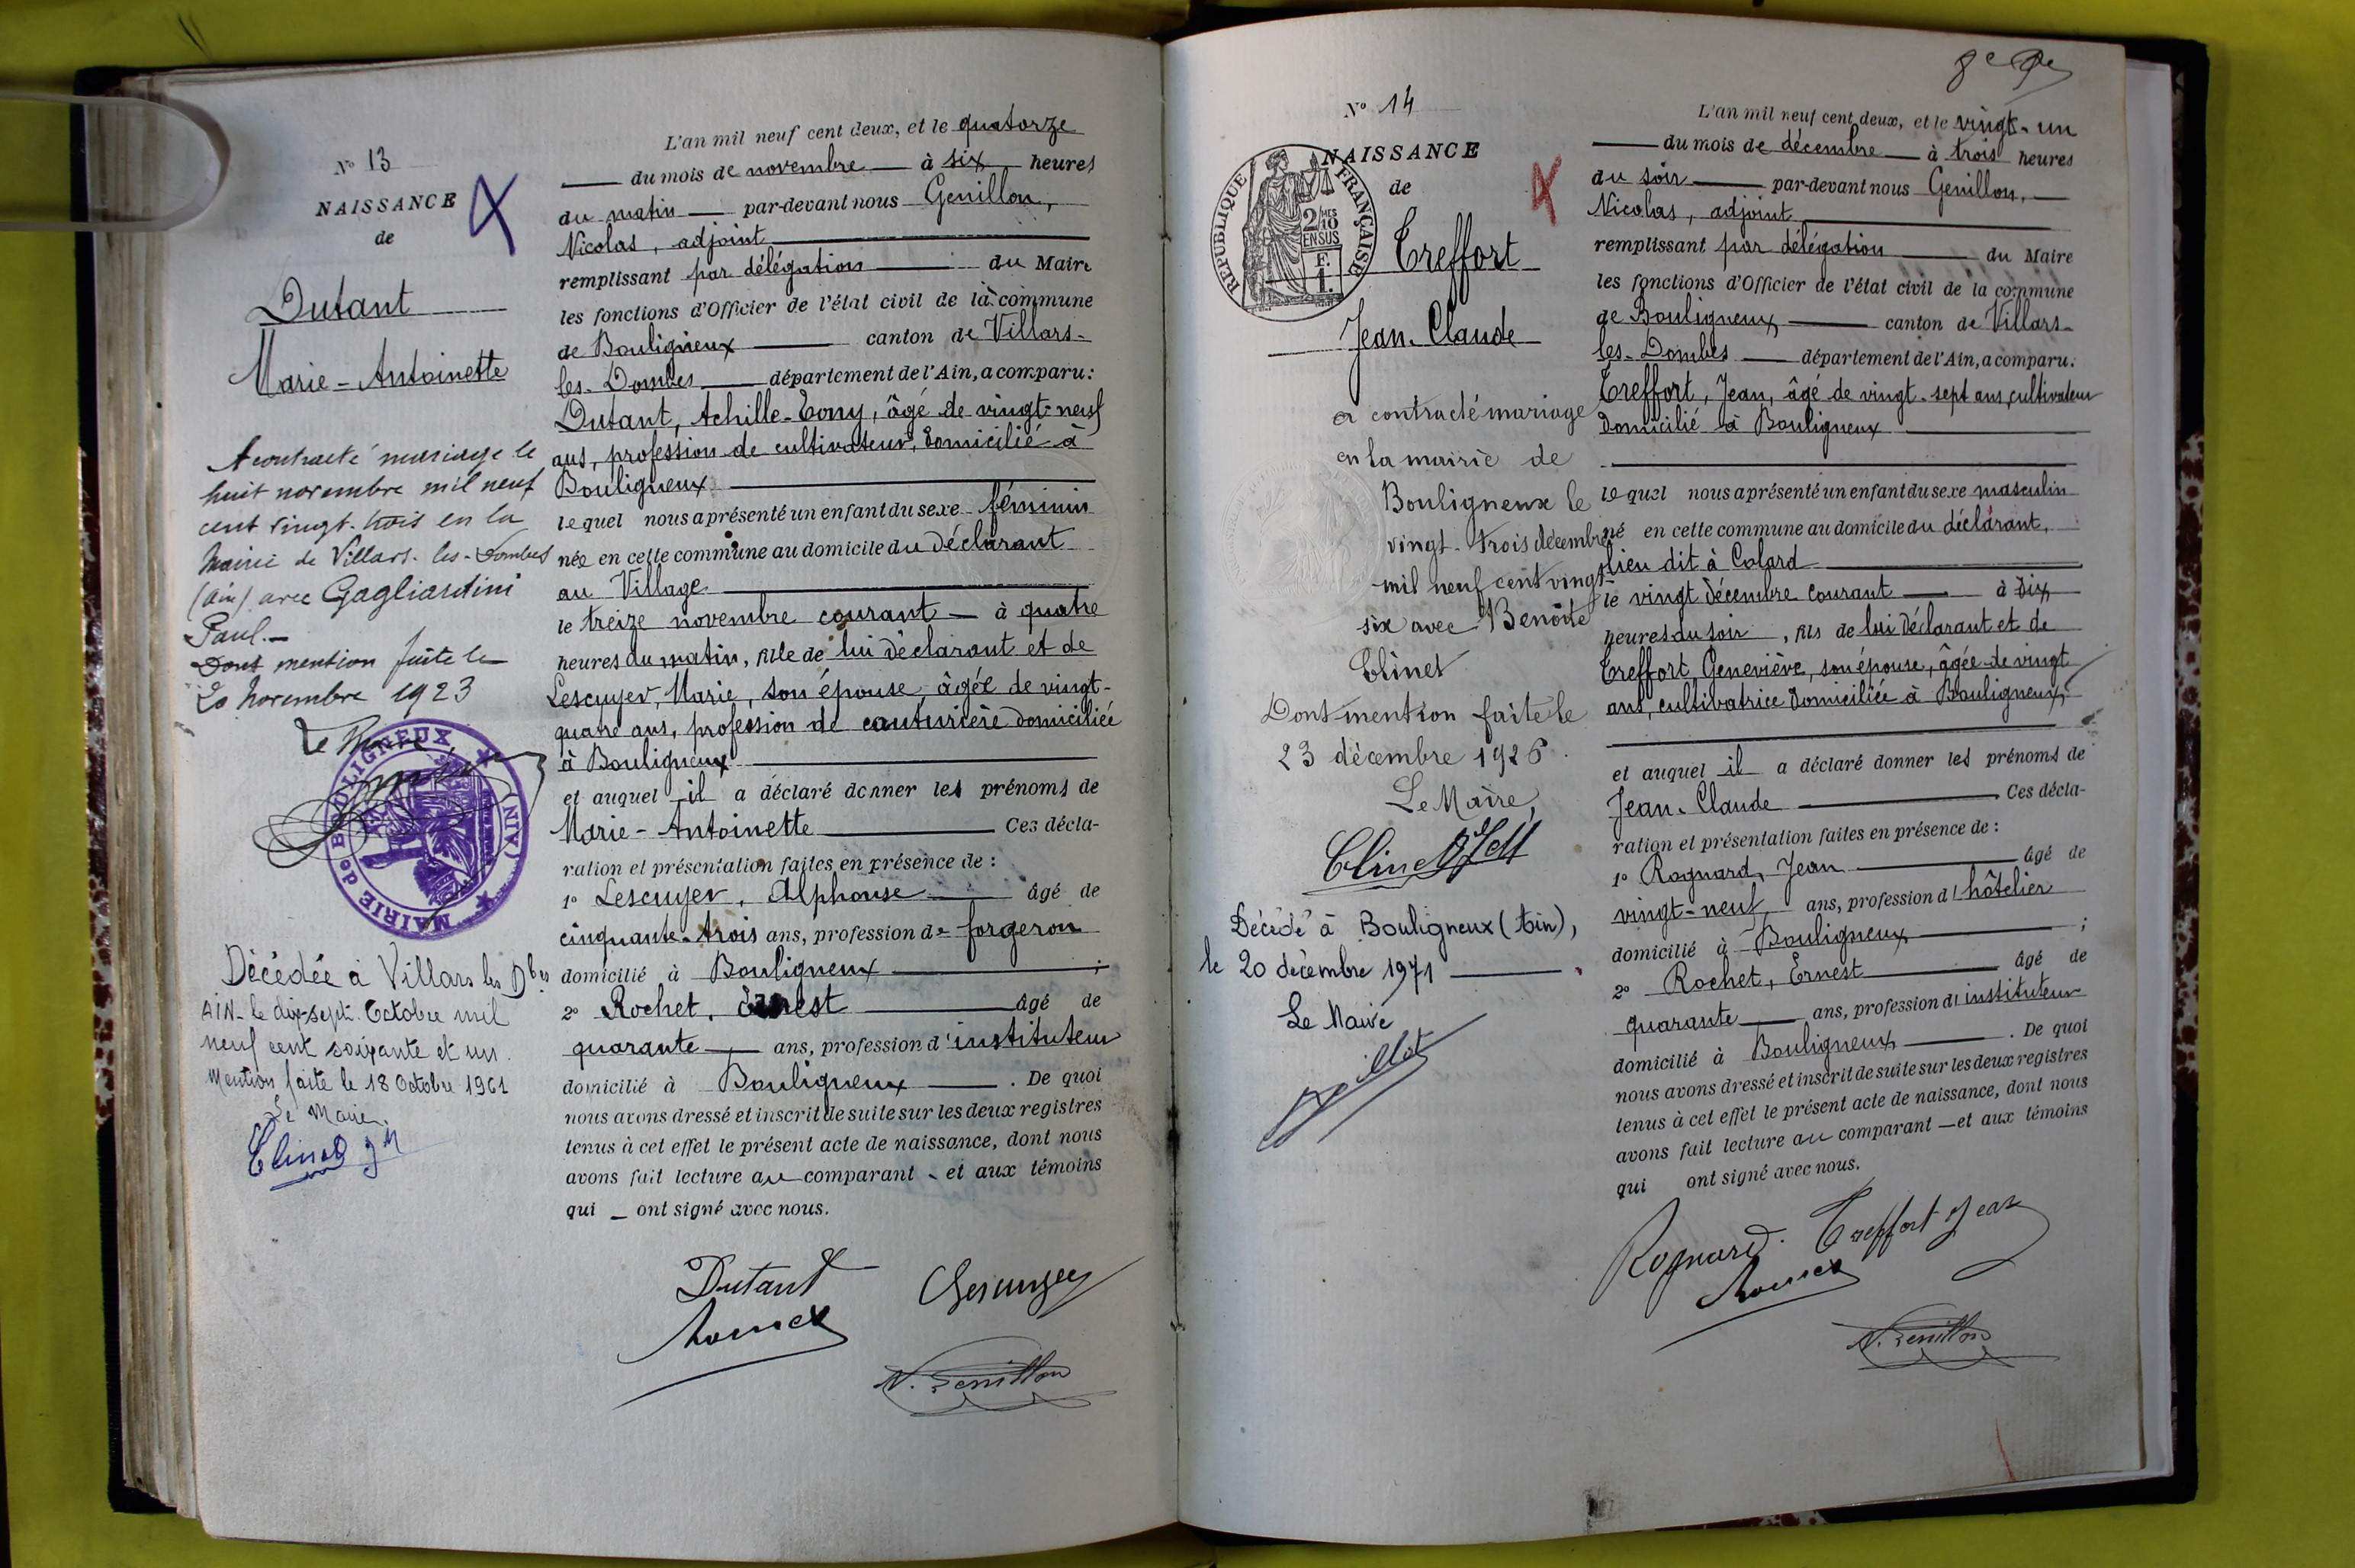 Nº 13
NAISSANCE
de
Dutant
Marie-Antoinette
A contracté mariage le
huit novembre mil neuf
cent vingt-trois en la
Mairie de Villars-les-Dombes
(Ain) avec Gagliardini
Paul.-
Dont mention faite le
20 Novembre 1923
Le Maire,
MAIRIE de BOULIGNEUX (AIN)
Décédée à Villars les Dbes
AIN- le dix-sept Octobre mil
neuf cent soixante et un.
Mention faite le 18 Octobre 1961
Le Maire.
L'an mil neuf cent deux, et le quatorze
du mois de novembre à six heures
du matin par-devant nous Genillon,
Nicolas, adjoint
remplissant par délégation du Maire
les fonctions d'Officier de l'état civil de la commune
de Bouligneux canton de Villars-
les-Dombes département de l'Ain, a comparu:
Dutant, Achille-Tony, âgé de vingt-neuf
ans, profession de cultivateur, domicilié à
Bouligneux
lequel nous a présenté un enfant du sexe féminin
née en cette commune au domicile du déclarant
au Village
le treize novembre courant — à quatre
heures du matin, fille de lui déclarant et de
Lescuyer, Marie, son épouse, âgée de vingt-
quatre ans, profession de couturière domiciliée
à Bouligneux
et auquel il a déclaré donner les prénoms de
Marie-Antoinette Ces décla-
ration et présentation faites en présence de :
1º Lescuyer, Alphonse âgé de
cinquante-trois ans, profession de forgeron
domicilié à Bouligneux ;
2º Rochet, Ernest âgé de
quarante ans, profession d'instituteur
domicilié à Bouligneux . De quoi
nous avons dressé et inscrit de suite sur les deux registres
tenus à cet effet le présent acte de naissance, dont nous
avons fait lecture au comparant - et aux témoins
qui _ ont signé avec nous.
Dutant Lescuyer
Rochet
N. Genillon
Nº 14
NAISSANCE
de
REPUBLIQUE FRANÇAISE
2/10 MES
EN SUS
F.
1.
Treffort
Jean-Claude
a contracté mariage
en la mairie de
Bouligneux le
vingt-trois décembre
mil neuf cent vingt-
six avec Benoite
Clinet
Dont mention faite le
23 décembre 1926.
Le Maire,
Décédé à Bouligneux (Ain),
le 20 décembre 1971
Le Maire
L'an mil neuf cent deux, et le vingt-un
du mois de décembre à trois heures
du soir par-devant nous Genillon,
Nicolas, adjoint
remplissant par délégation du Maire
les fonctions d'Officier de l'état civil de la commune
de Bouligneux canton de Villars-
les-Dombes département de l'Ain, a comparu:
Treffort, Jean, âgé de vingt-sept ans, cultivateur
domicilié à Bouligneux
lequel nous a présenté un enfant du sexe masculin
né en cette commune au domicile du déclarant,
lieu dit à Colard
le vingt décembre courant à dix
heures du soir, fils de lui déclarant et de
Treffort, Geneviève, son épouse, âgée de vingt
ans, cultivatrice domiciliée à Bouligneux
et auquel il a déclaré donner les prénoms de
Jean-Claude . Ces décla-
ration et présentation faites en présence de :
1º Rognard, Jean âgé de
vingt-neuf ans, profession d'hôtelier
domicilié à Bouligneux ;
2º Rochet, Ernest âgé de
quarante ans, profession d'instituteur
domicilié à Bouligneux . De quoi
nous avons dressé et inscrit de suite sur les deux registres
tenus à cet effet le présent acte de naissance, dont nous
avons fait lecture au comparant — et aux témoins
qui ont signé avec nous.
Rognard. Treffort Jean
Rochet
N. Genillon